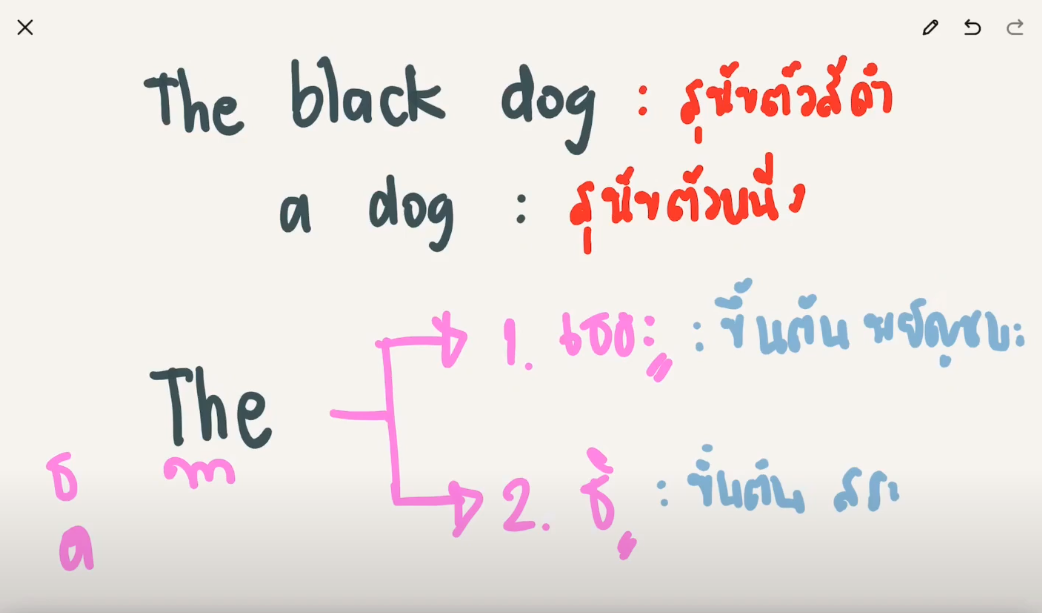 The black dog : สุนัขตัวสีดำ
a dog : สุนัขตัวหนึ่ง
1. เธอะ : ขึ้นต้น พยัญชนะ
The
2. ธี : ขึ้นต้น สระ
ธ
ด